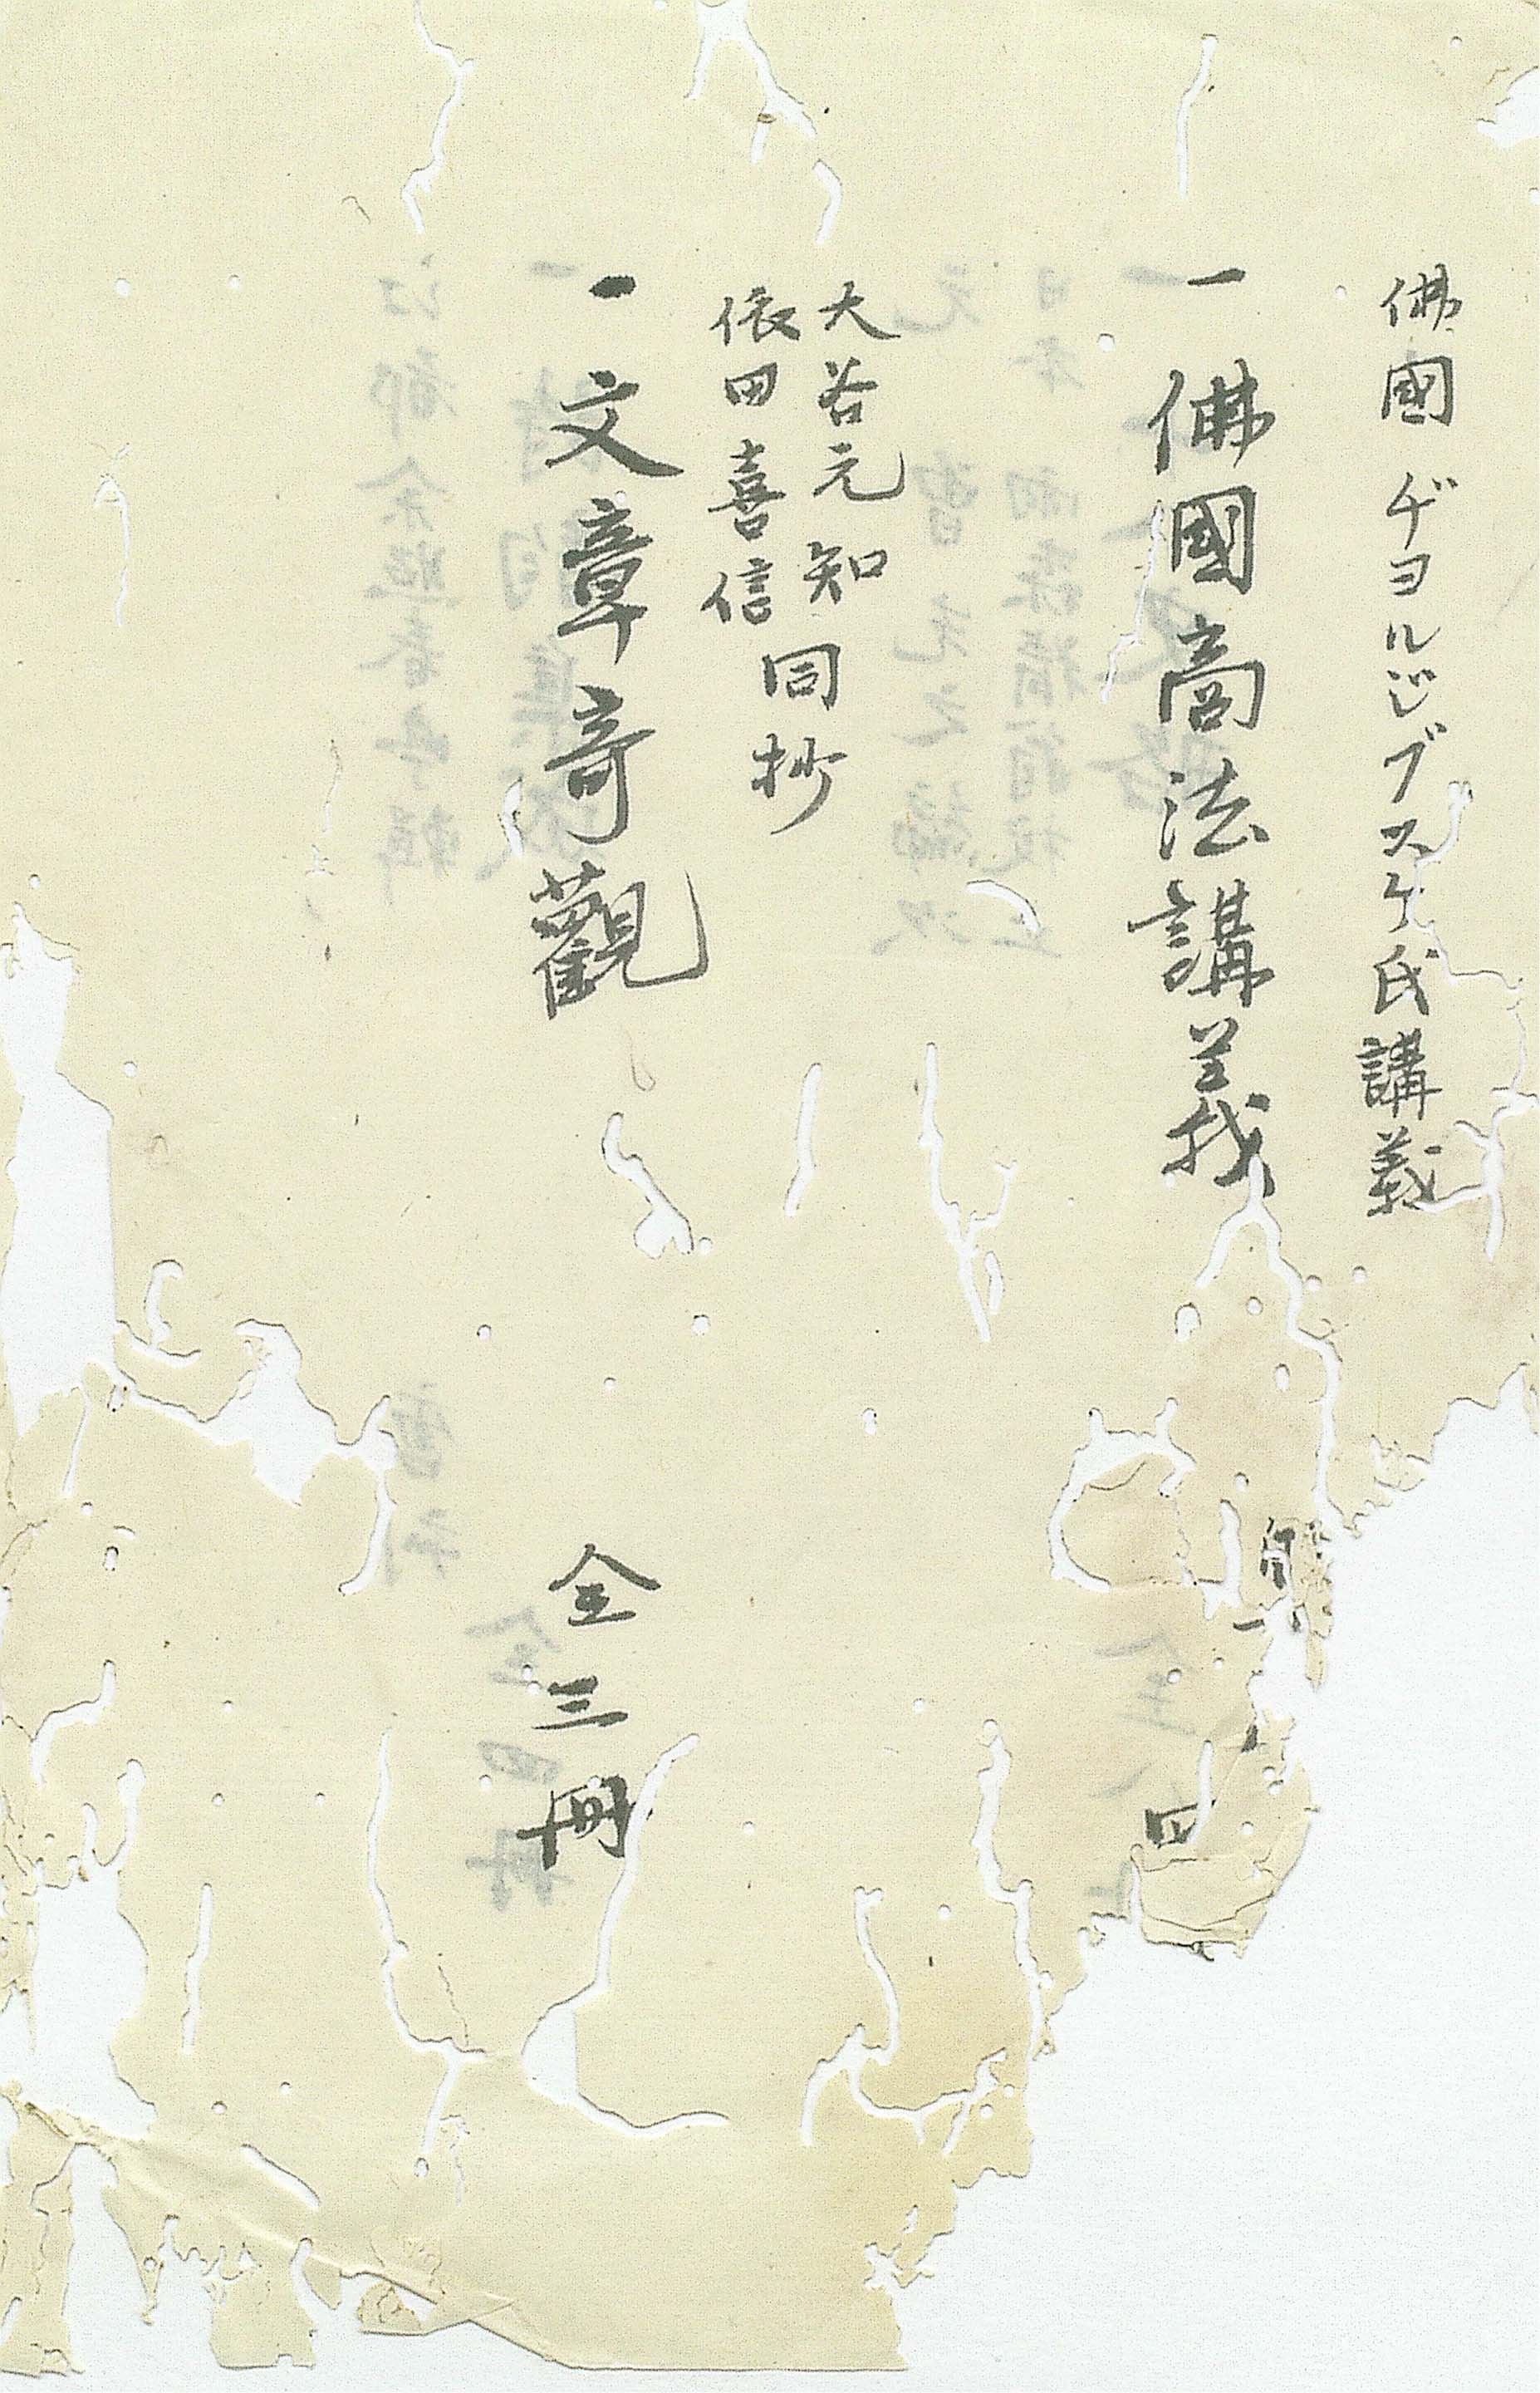 佛國ヂヨルジブスケ氏講義
一佛國商法講義
四
大谷元知
依田喜信
同抄
一文章奇觀
全三冊